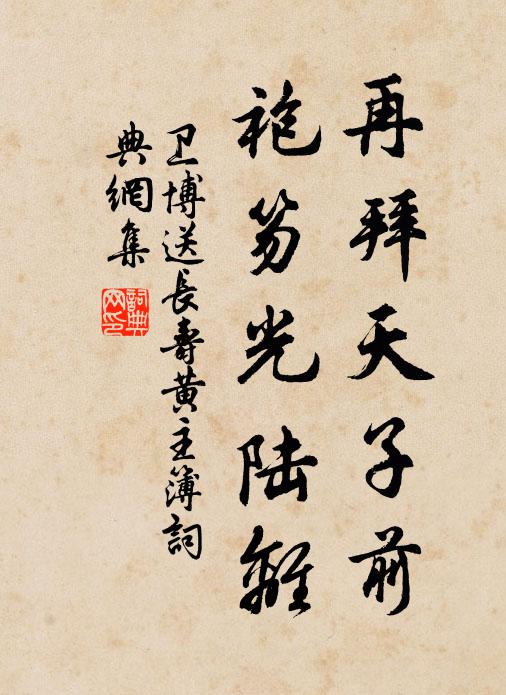 再拜天子前
袍笏光陆離
卫博送長壽黄主簿詞
典網集
詞典
网印